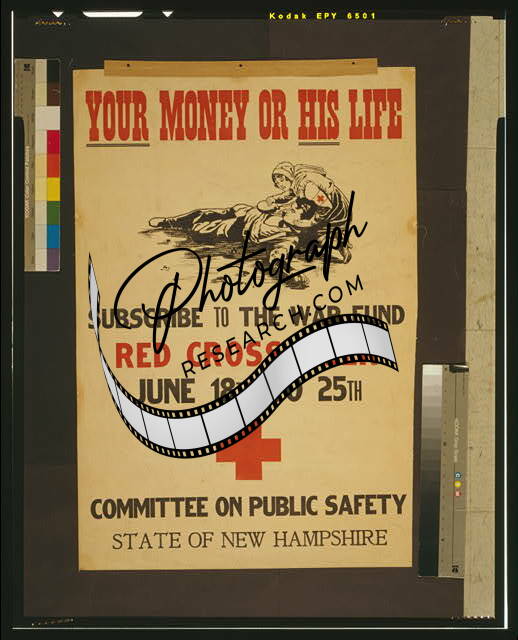 Kodak EPY 6501
YOUR MONEY OR HIS LIFE
Photograph
RESEARCH.COM
SUBSCRIBE TO THE WAR FUND
RED CROSS
JUNE 18 TO 25TH
COMMITTEE ON PUBLIC SAFETY
STATE OF NEW HAMPSHIRE